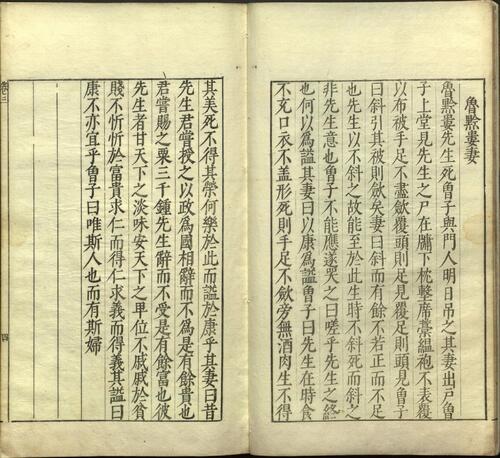 魯黔婁妻
魯黔婁先生死魯子與門人明日吊之其妻出戶魯
子上堂見先生之尸在牖下枕墼席藁縕袍不表覆
以布被手足不盡歛覆頭則足見覆足則頭見魯子
曰斜引其被則歛矣妻曰斜而有餘不若正而不足
也先生以不斜之故能至於此生時不斜死而斜之
非先生意也魯子不能應遂哭之曰嗟乎先生之終
也何以為謚其妻曰以康為謚魯子曰先生在時食
不充口衣不盖形死則手足不歛旁無酒肉生不得
其美死不得其榮何樂於此而謚於康乎其妻曰昔
先生君嘗授之以政為國相辭而不為是有餘貴也
君嘗賜之粟三千鍾先生辭而不受是有餘富也彼
先生者甘天下之淡味安天下之卑位不戚戚於貧
賤不忻忻於富貴求仁而得仁求義而得義其謚曰
康不亦宜乎魯子曰唯斯人也而有斯婦
卷三
四